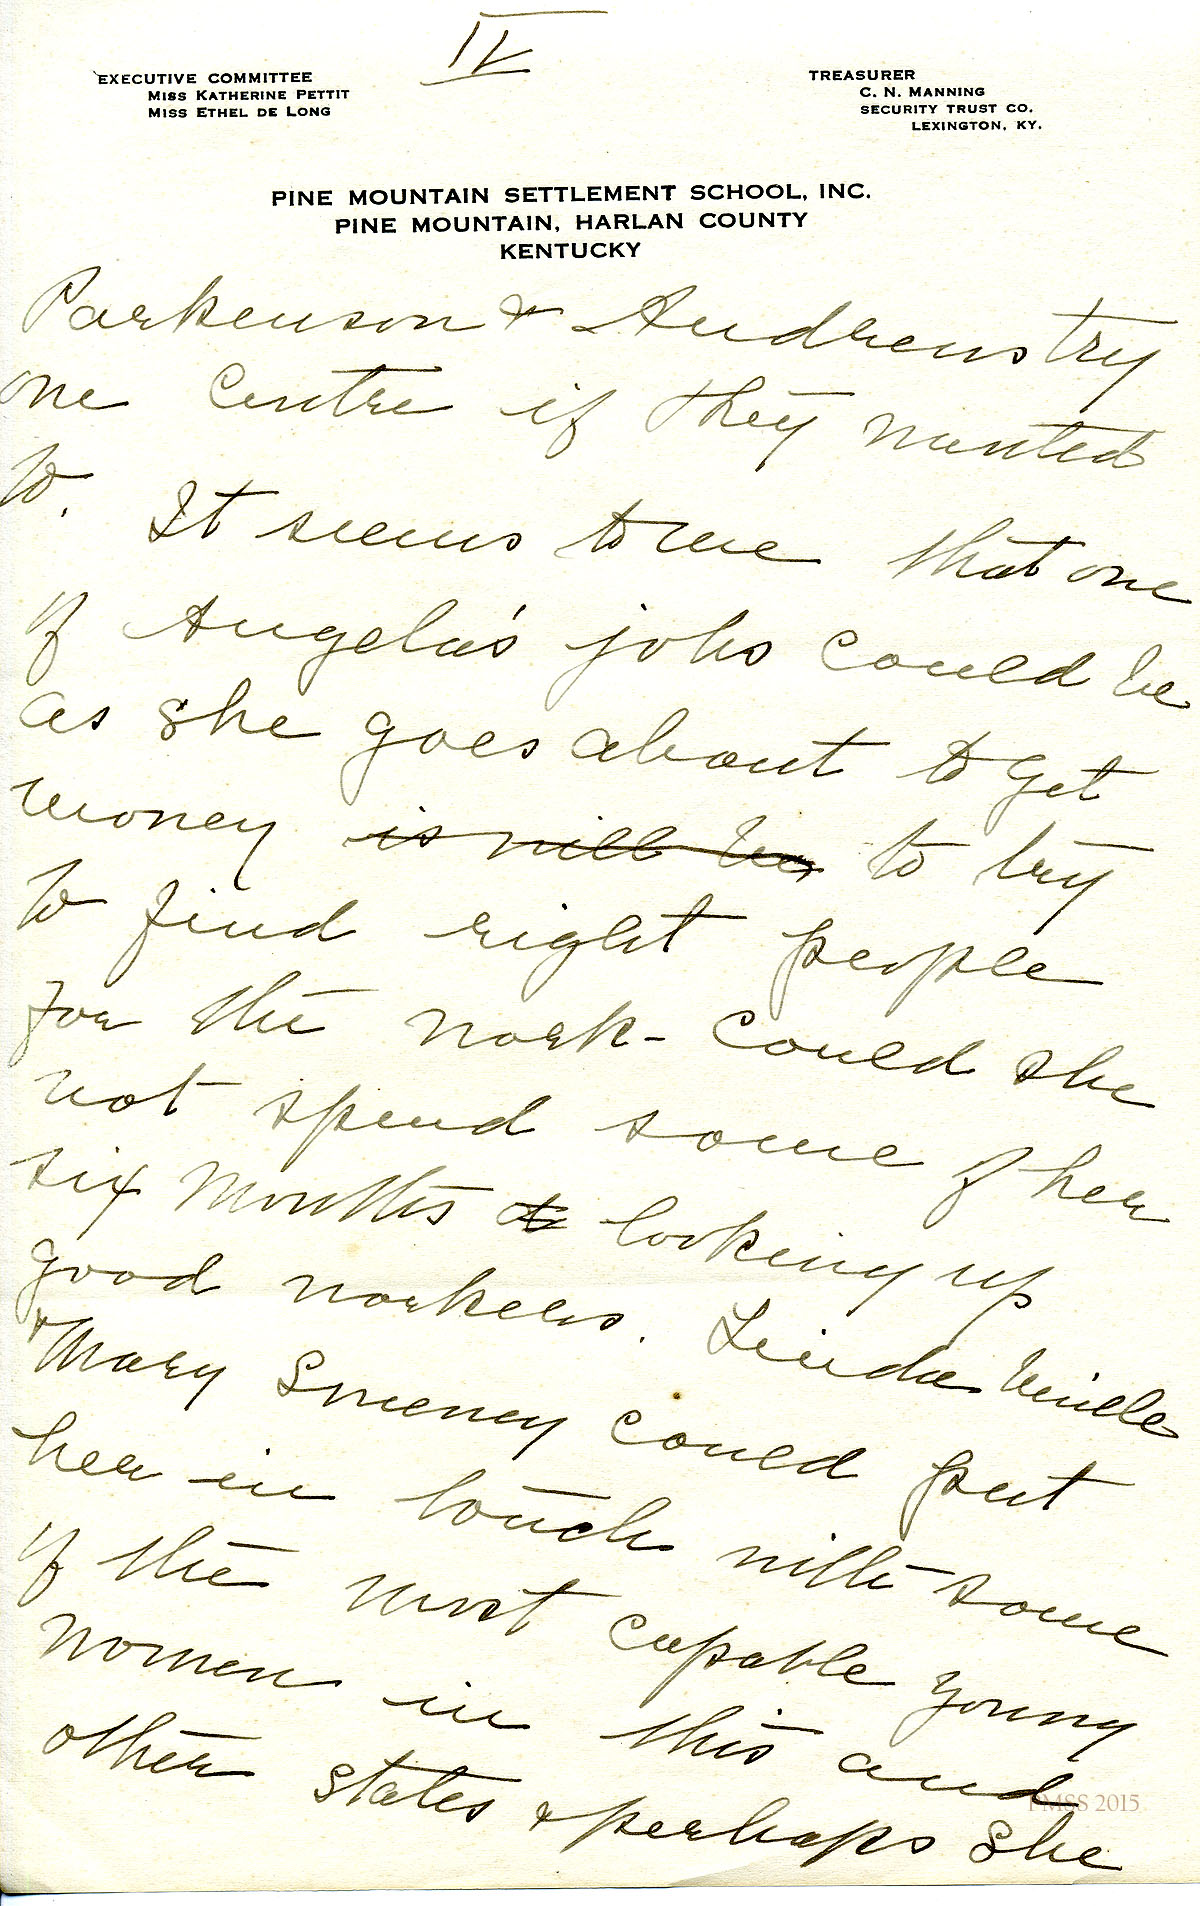 IV
EXECUTIVE COMMITTEE
MISS KATHERINE PETTIT
MISS ETHEL DE LONG
TREASURER
C. N. MANNING
SECURITY TRUST CO.
LEXINGTON, KY.
PINE MOUNTAIN SETTLEMENT SCHOOL, INC.
PINE MOUNTAIN, HARLAN COUNTY
KENTUCKY
Parkenson & Andrews try
one Centre if they wanted
to. It seems to me that one
of Angela's jobs could be
as she goes about to get
money is will be to try
to find right people
for the work - could she
not spend some of her
six months to looking up
good workers. Linda Neville
& Mary Sweeney could put
her in touch with some
of the most capable young
women in this and
other states & perhaps she
PMSS 2015